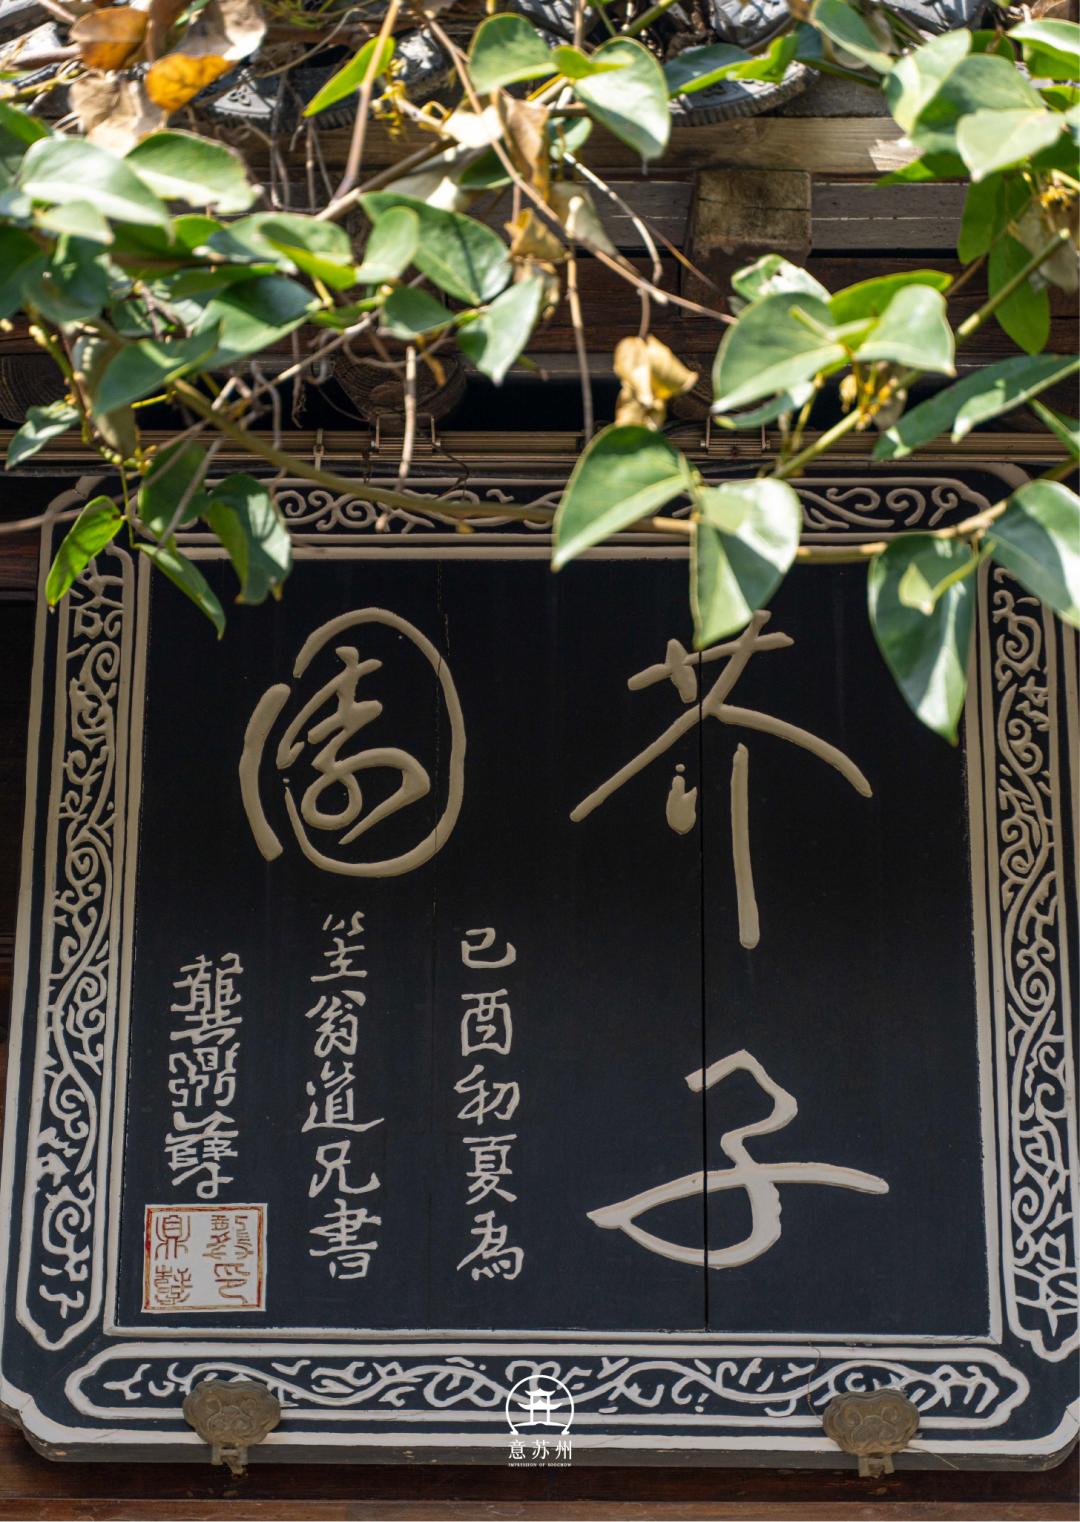 芥子
園
己酉初夏為
笠翁道兄書
龔鼎孽
龔印
鼎孳
意苏州
IMPRESSION OF SOOCHOW